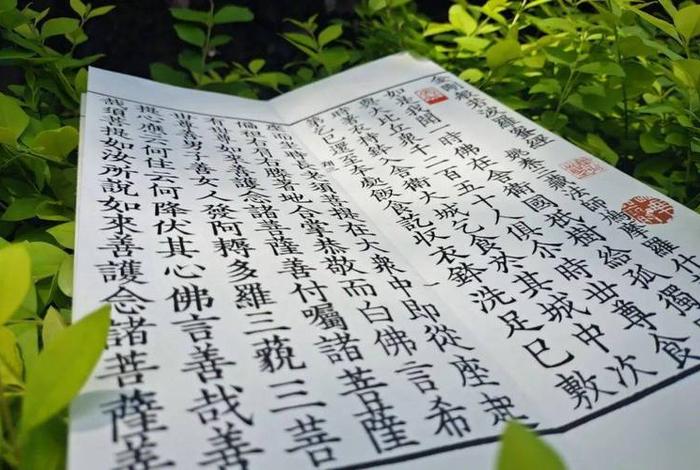 金剛般若波羅蜜經
姚秦三藏法師鳩摩羅什
如是我聞一時佛在舍衛國祇樹給孤獨
與大比丘衆千二百五十人俱尒時世尊食
時著衣持鉢入舍衛大城乞食於其城中次
第乞已還至本處飯食訖收衣鉢洗足已敷
座而坐時長老須菩提在大衆中即從座起
偏袒右肩右膝著地合掌恭敬而白佛言希
有世尊如來善護念諸菩薩善付囑諸菩薩
世尊善男子善女人發阿耨多羅三藐三菩
提心應云何住云何降伏其心佛言善哉善
哉須菩提如汝所說如來善護念諸菩薩善